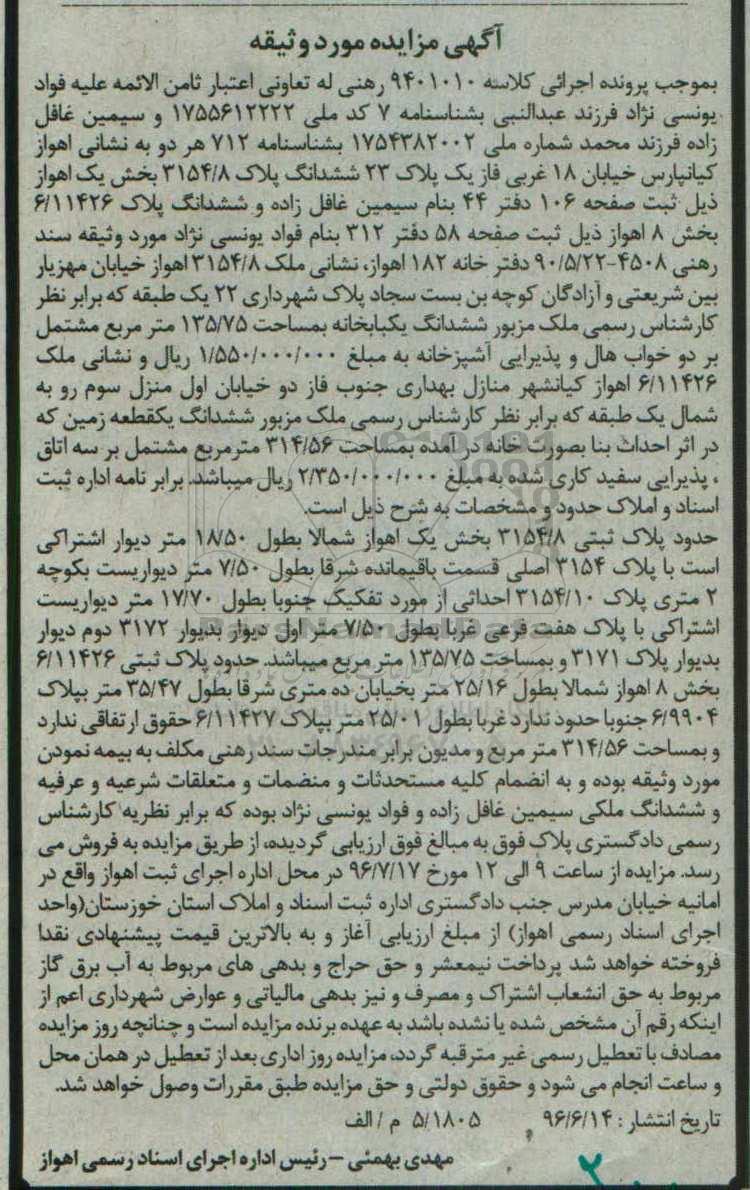 آگهی مزایده مورد وثیقه
بموجب پرونده اجرائی کلاسه ۹۴۰۱۰۱۰ رهنی له تعاونی اعتبار ثامن الائمه علیه فواد
یونسی نژاد فرزند عبدالنبی بشناسنامه ۷ کد ملی ۱۷۵۵۶۱۲۲۲۲ و سیمین غافل
زاده فرزند محمد شماره ملی ۱۷۵۴۳۸۲۰۰۲ بشناسنامه ۷۱۲ هر دو به نشانی اهواز
کیانپارس خیابان ۱۸ غربی فاز یک پلاک ۲۳ ششدانگ پلاک ۳۱۵۴/۸ بخش یک اهواز
ذیل ثبت صفحه ۱۰۶ دفتر ۴۴ بنام سیمین غافل زاده و ششدانگ پلاک ۶/۱۱۴۲۶
بخش ۸ اهواز ذیل ثبت صفحه ۵۸ دفتر ۳۱۲ بنام فواد یونسی نژاد مورد وثیقه سند
رهنی ۴۵۰۸-۹۰/۵/۲۲ دفتر خانه ۱۸۲ اهواز، نشانی ملک ۳۱۵۴/۸ اهواز خیابان مهزیار
بین شریعتی و آزادگان کوچه بن بست سجاد پلاک شهرداری ۲۲ یک طبقه که برابر نظر
کارشناس رسمی ملک مزبور ششدانگ یکبابخانه بمساحت ۱۳۵/۷۵ متر مربع مشتمل
بر دو خواب هال و پذیرایی آشپزخانه به مبلغ ۱/۵۵۰/۰۰۰/۰۰۰ ریال و نشانی ملک
۶/۱۱۴۲۶ اهواز کیانشهر منازل بهداری جنوب فاز دو خیابان اول منزل سوم رو به
شمال یک طبقه که برابر نظر کارشناس رسمی ملک مزبور ششدانگ یکقطعه زمین که
در اثر احداث بنا بصورت خانه در آمده بمساحت ۳۱۴/۵۶ مترمربع مشتمل بر سه اتاق
، پذیرایی سفید کاری شده به مبلغ ۲/۳۵۰/۰۰۰/۰۰۰ ریال میباشد. برابر نامه اداره ثبت
اسناد و املاک حدود و مشخصات به شرح ذیل است.
حدود پلاک ثبتی ۳۱۵۴/۸ بخش یک اهواز شمالا بطول ۱۸/۵۰ متر دیوار اشتراکی
است با پلاک ۳۱۵۴ اصلی قسمت باقیمانده شرقا بطول ۷/۵۰ متر دیواریست بکوچه
۲ متری پلاک ۳۱۵۴/۱۰ احداثی از مورد تفکیک جنوبا بطول ۱۷/۷۰ متر دیواریست
اشتراکی با پلاک هفت فرعی غربا بطول ۷/۵۰ متر اول دیوار بدیوار ۳۱۷۲ دوم دیوار
بدیوار پلاک ۳۱۷۱ و بمساحت ۱۳۵/۷۵ متر مربع میباشد. حدود پلاک ثبتی ۶/۱۱۴۲۶
بخش ۸ اهواز شمالا بطول ۲۵/۱۶ متر بخیابان ده متری شرقا بطول ۳۵/۴۷ متر بپلاک
۶/۹۹۰۴ جنوبا حدود ندارد غربا بطول ۲۵/۰۱ متر بپلاک ۶/۱۱۴۲۷ حقوق ارتفاقی ندارد
و بمساحت ۳۱۴/۵۶ متر مربع و مدیون برابر مندرجات سند رهنی مکلف به بیمه نمودن
مورد وثیقه بوده و به انضمام کلیه مستحدثات و منضمات و متعلقات شرعیه و عرفیه
و ششدانگ ملکی سیمین غافل زاده و فواد یونسی نژاد بوده که برابر نظریه کارشناس
رسمی دادگستری پلاک فوق به مبالغ فوق ارزیابی گردیده، از طریق مزایده به فروش می
رسد. مزایده از ساعت ۹ الی ۱۲ مورخ ۹۶/۷/۱۷ در محل اداره اجرای ثبت اهواز واقع در
امانیه خیابان مدرس جنب دادگستری اداره ثبت اسناد و املاک استان خوزستان(واحد
اجرای اسناد رسمی اهواز) از مبلغ ارزیابی آغاز و به بالاترین قیمت پیشنهادی نقدا
فروخته خواهد شد پرداخت نیمعشر و حق حراج و بدهی های مربوط به آب برق گاز
مربوط به حق انشعاب اشتراک و مصرف و نیز بدهی مالیاتی و عوارض شهرداری اعم از
اینکه رقم آن مشخص شده یا نشده باشد به عهده برنده مزایده است و چنانچه روز مزایده
مصادف با تعطیل رسمی غیر مترقبه گردد، مزایده روز اداری بعد از تعطیل در همان محل
و ساعت انجام می شود و حقوق دولتی و حق مزایده طبق مقررات وصول خواهد شد.
تاریخ انتشار : ۹۶/۶/۱۴ ۵/۱۸۰۵ م / الف
مهدی بهمئی – رئیس اداره اجرای اسناد رسمی اهواز